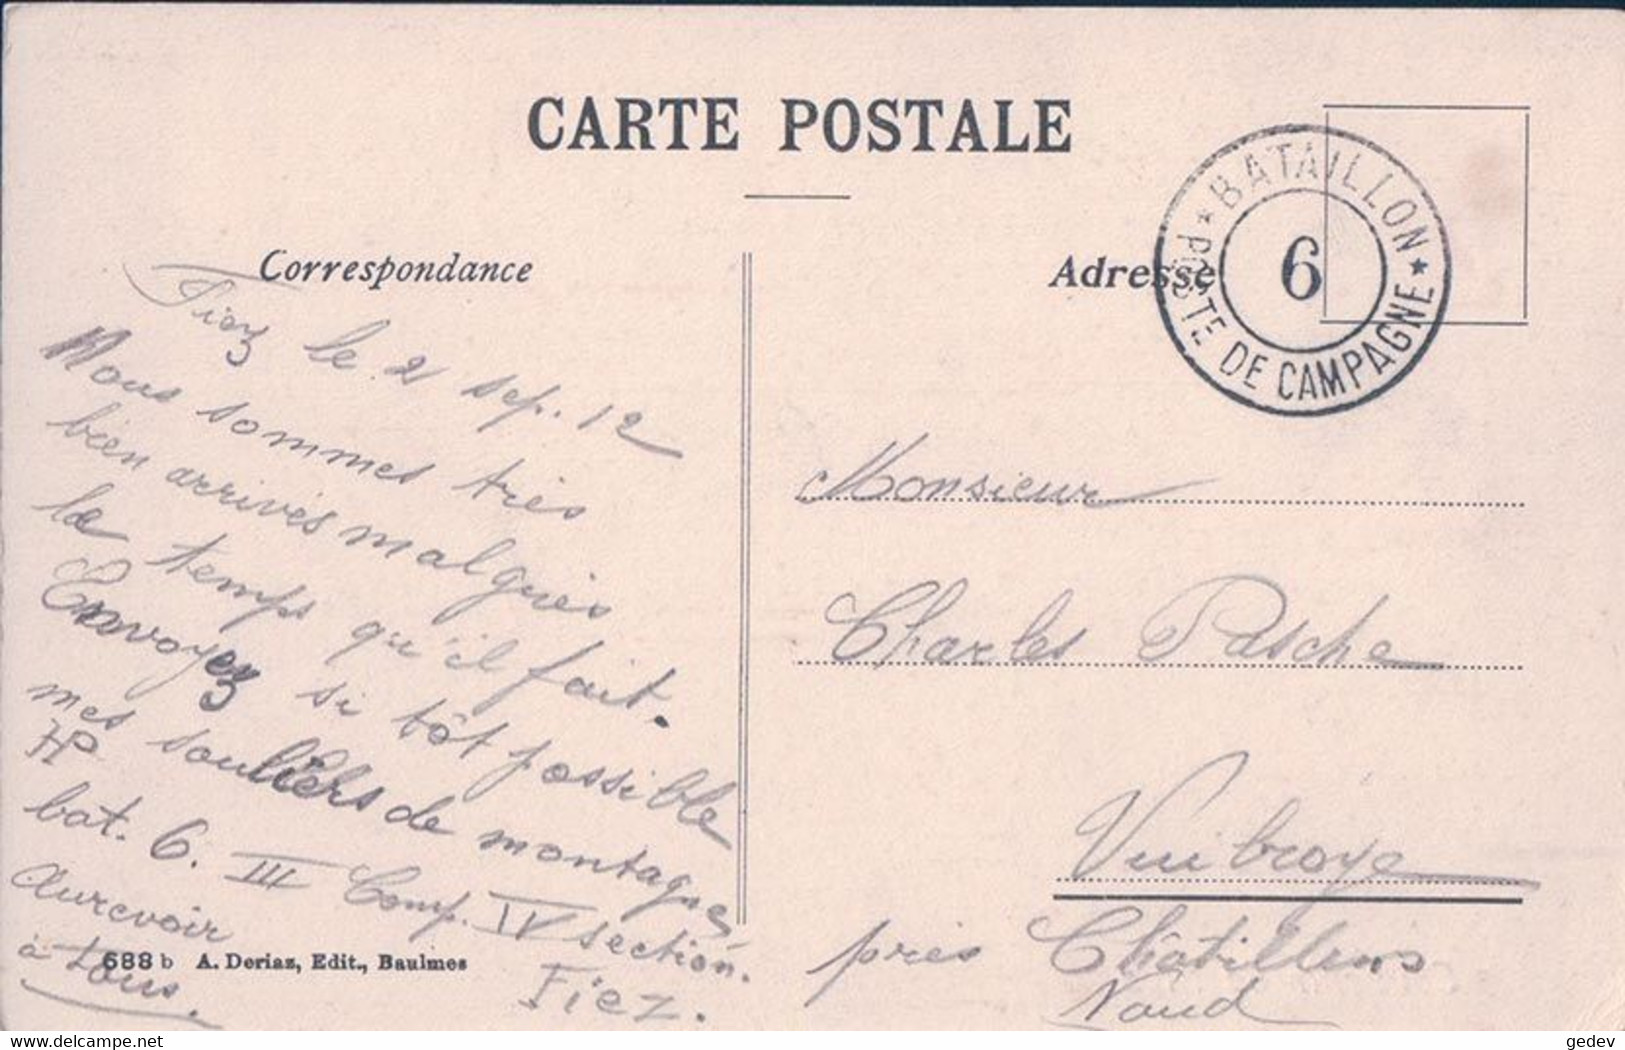 CARTE POSTALE
Correspondance
Fiez le 2 sep. 12
Nous sommes très
bien arrivés malgrés
le temps qu'il fait.
Envoyez si tôt possible
mes souliers de montagne
HP
bat. 6. III Comp. IV section.
Aurevoir
à tous.
Fiez.
688 b A. Deriaz, Edit., Baulmes
Adresse
★ BATAILLON ★
POSTE DE CAMPAGNE
6
Monsieur
Charles Pasche
Vuibroye
près Châtillens
Vaud
gedev